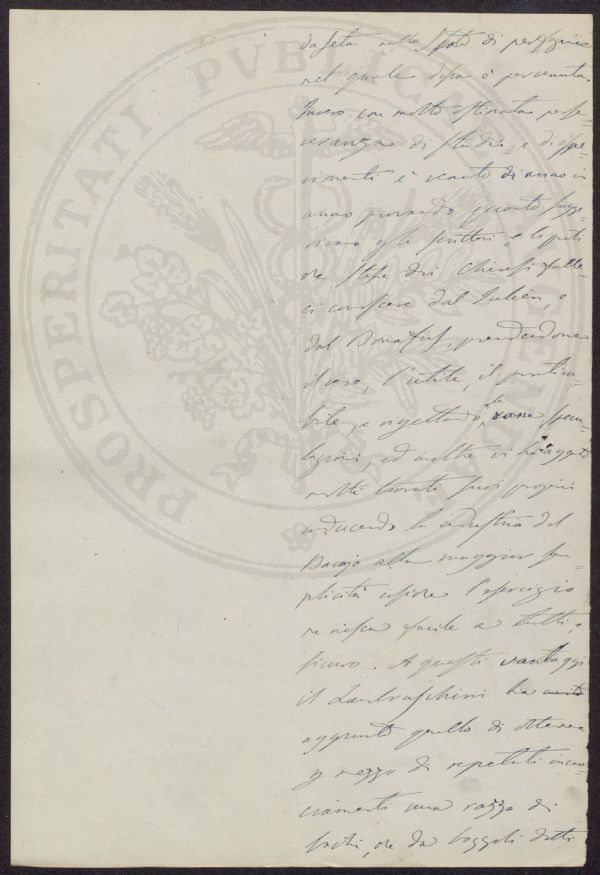 da seta nello stato di perfezione
nel quale essa è pervenuta.
Invero con molto ostinata perse-
veranza di studii, e di espe-
rimenti è venuto di anno in
anno provando quanto sugge-
rivano gli scrittori, e le prati
che stesse dei Chinesi fatte-
ci conoscere dal Julien, e
dal Bonafus, prendendone
il vero, l'utile, il pratica-
bile, e rigettando le vane specu-
lazioni, ed inoltre vi ha aggiunto
molti trovati suoi proprii
riducendo la industria del
Bacajo alla maggior sem-
plicità ossia che l'esercizio
ne riesca facile a tutti, e
sicuro. A questi vantaggi
il Lambruschini ha
aggiunto quello di ottenere
per mezzo di repetuti incro-
ciamenti una razza di
bachi, che da bozzoli detti
PROSPERITATI PUBLICAE AUGENDAE